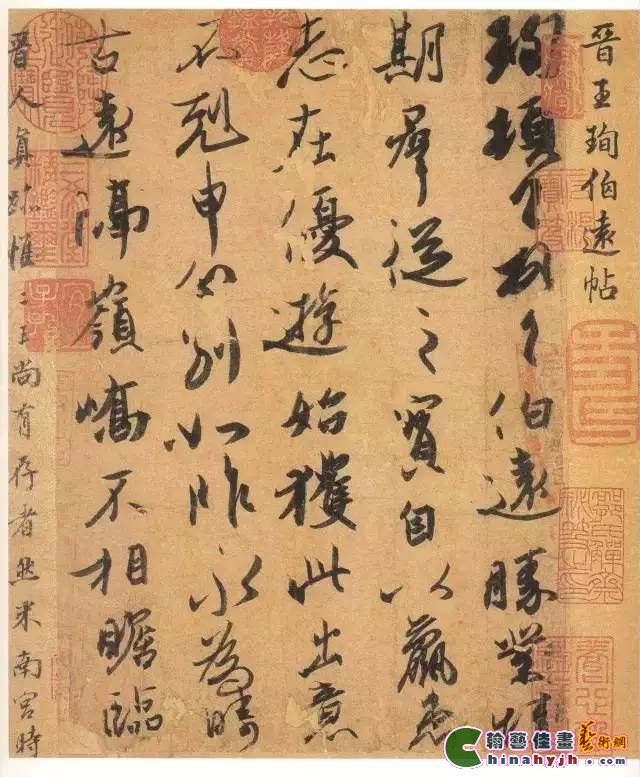 晉王珣伯遠帖
珣頓首頓首伯遠勝業情
期群從之寶自以羸患
志在優遊始獲此出意
不剋申分別如昨永為疇
古遠隔嶺嶠不相瞻臨
晉人真跡惟二王尚有存者然米南宮時
翰藝佳畫藝術網
hinahyjh.com